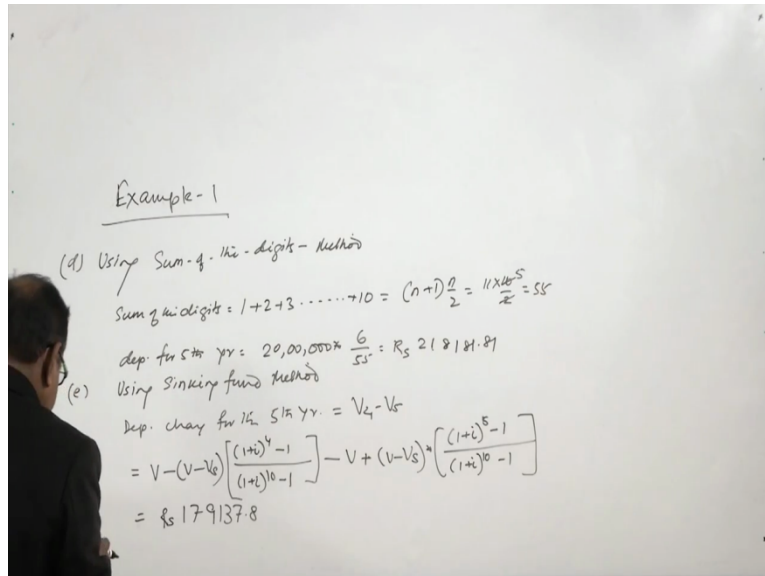 Example-1
(d) Using Sum-of-the-digits-Method
Sum of the digits = 1+2+3 ......+10 = (n+1) n/2 = 11×10/2 5 = 55
dep. for 5th yr = 20,00,000 × 6/55 = Rs 218181.81
(e) Using Sinking fund Method
Dep. charge for the 5th yr. = V4-V5
= V-(V-Vs) [((1+i)^4 -1)/((1+i)^10 -1)] - V + (V-Vs) * [((1+i)^5 -1)/((1+i)^10 -1)]
= Rs 179137.8